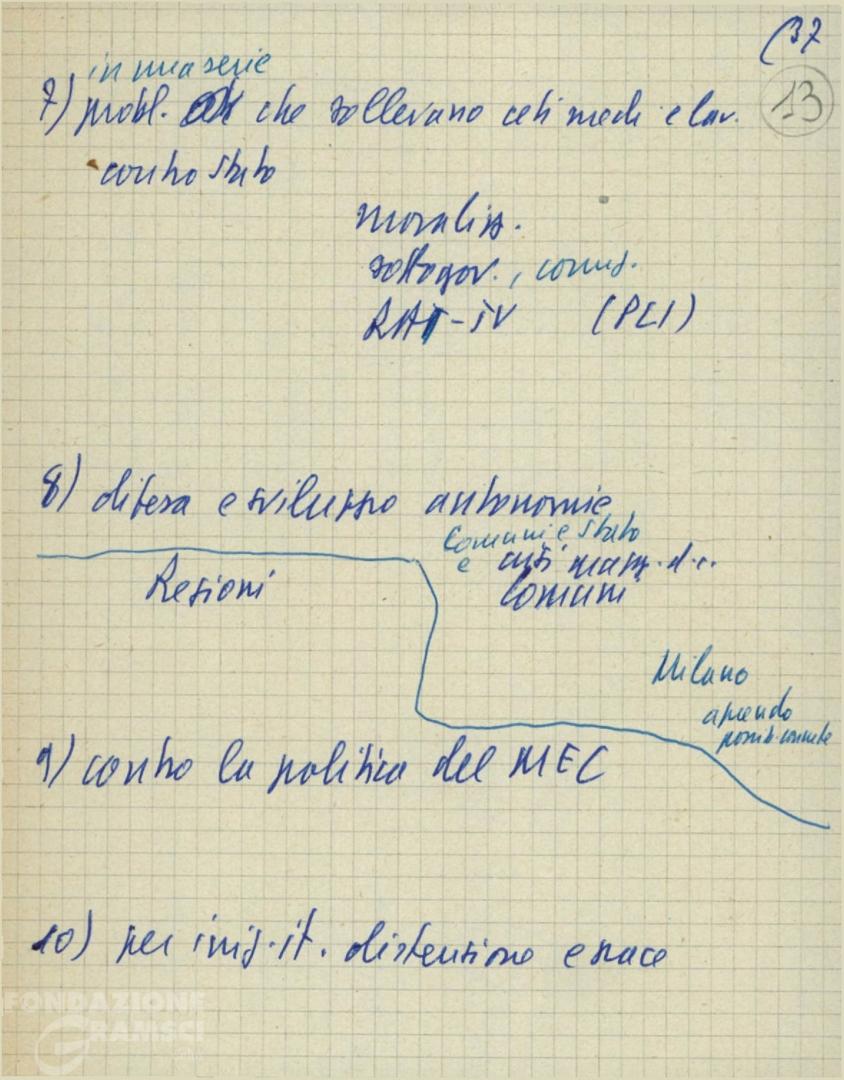 (37
13
in una serie
7) probl. che sollevano ceti medi e lav.
contro Stato
moralizz.
sottogov., corruz.
RAI-TV (PCI)
8) difesa e sviluppo autonomie
Comuni e Stato
e
Regioni
Comuni
Milano
aprendo
possib. concrete
9) contro la politica del MEC
10) per iniz. it. distensione e pace
FONDAZIONE
GRAMSCI